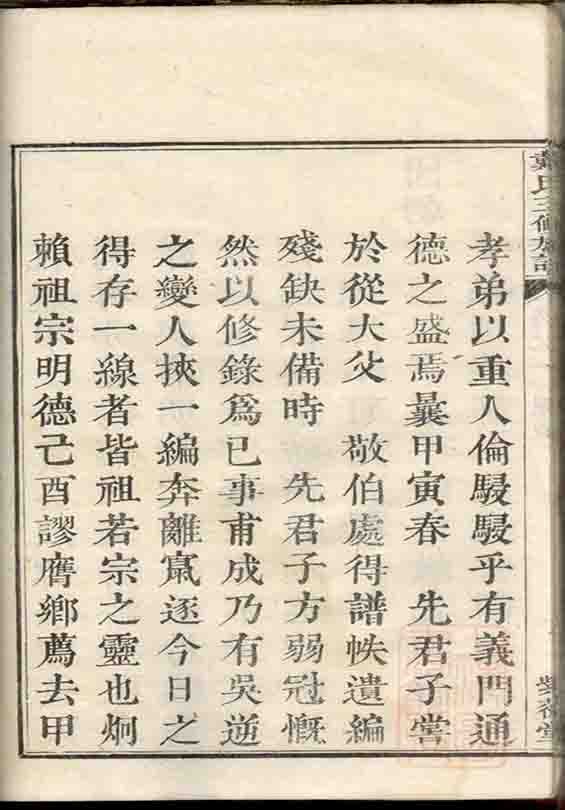 氏三修族譜
孝弟以重人倫駸駸乎有義門通
德之盛焉曩甲寅春　先君子嘗
於從大父　敬伯處得譜帙遺編
殘缺未備時　先君子方弱冠慨
然以修錄爲已事甫成乃有吳逆
之變人挾一編奔離竄逐今日之
得存一線者皆祖若宗之靈也炯
賴祖宗明德己酉謬膺鄉薦去甲
堂